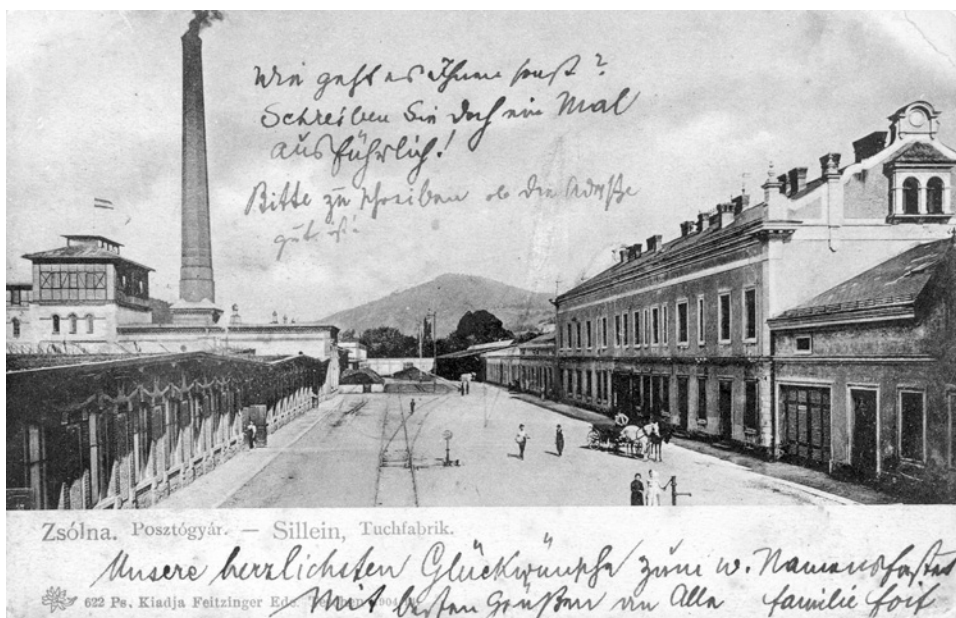 Wie geht es Ihnen sonst?
Schreiben Sie doch ein Mal
ausführlich!
Bitte zu schreiben ob die Adresse
gut ist!
Zsólna. Posztógyár. — Sillein, Tuchfabrik.
Unsere herzlichsten Glückwünsche zum w. Namensfeste
622 Ps. Kiadja Feitzinger Ede, Teschen 1904
Mit besten Grüßen an Alle familie